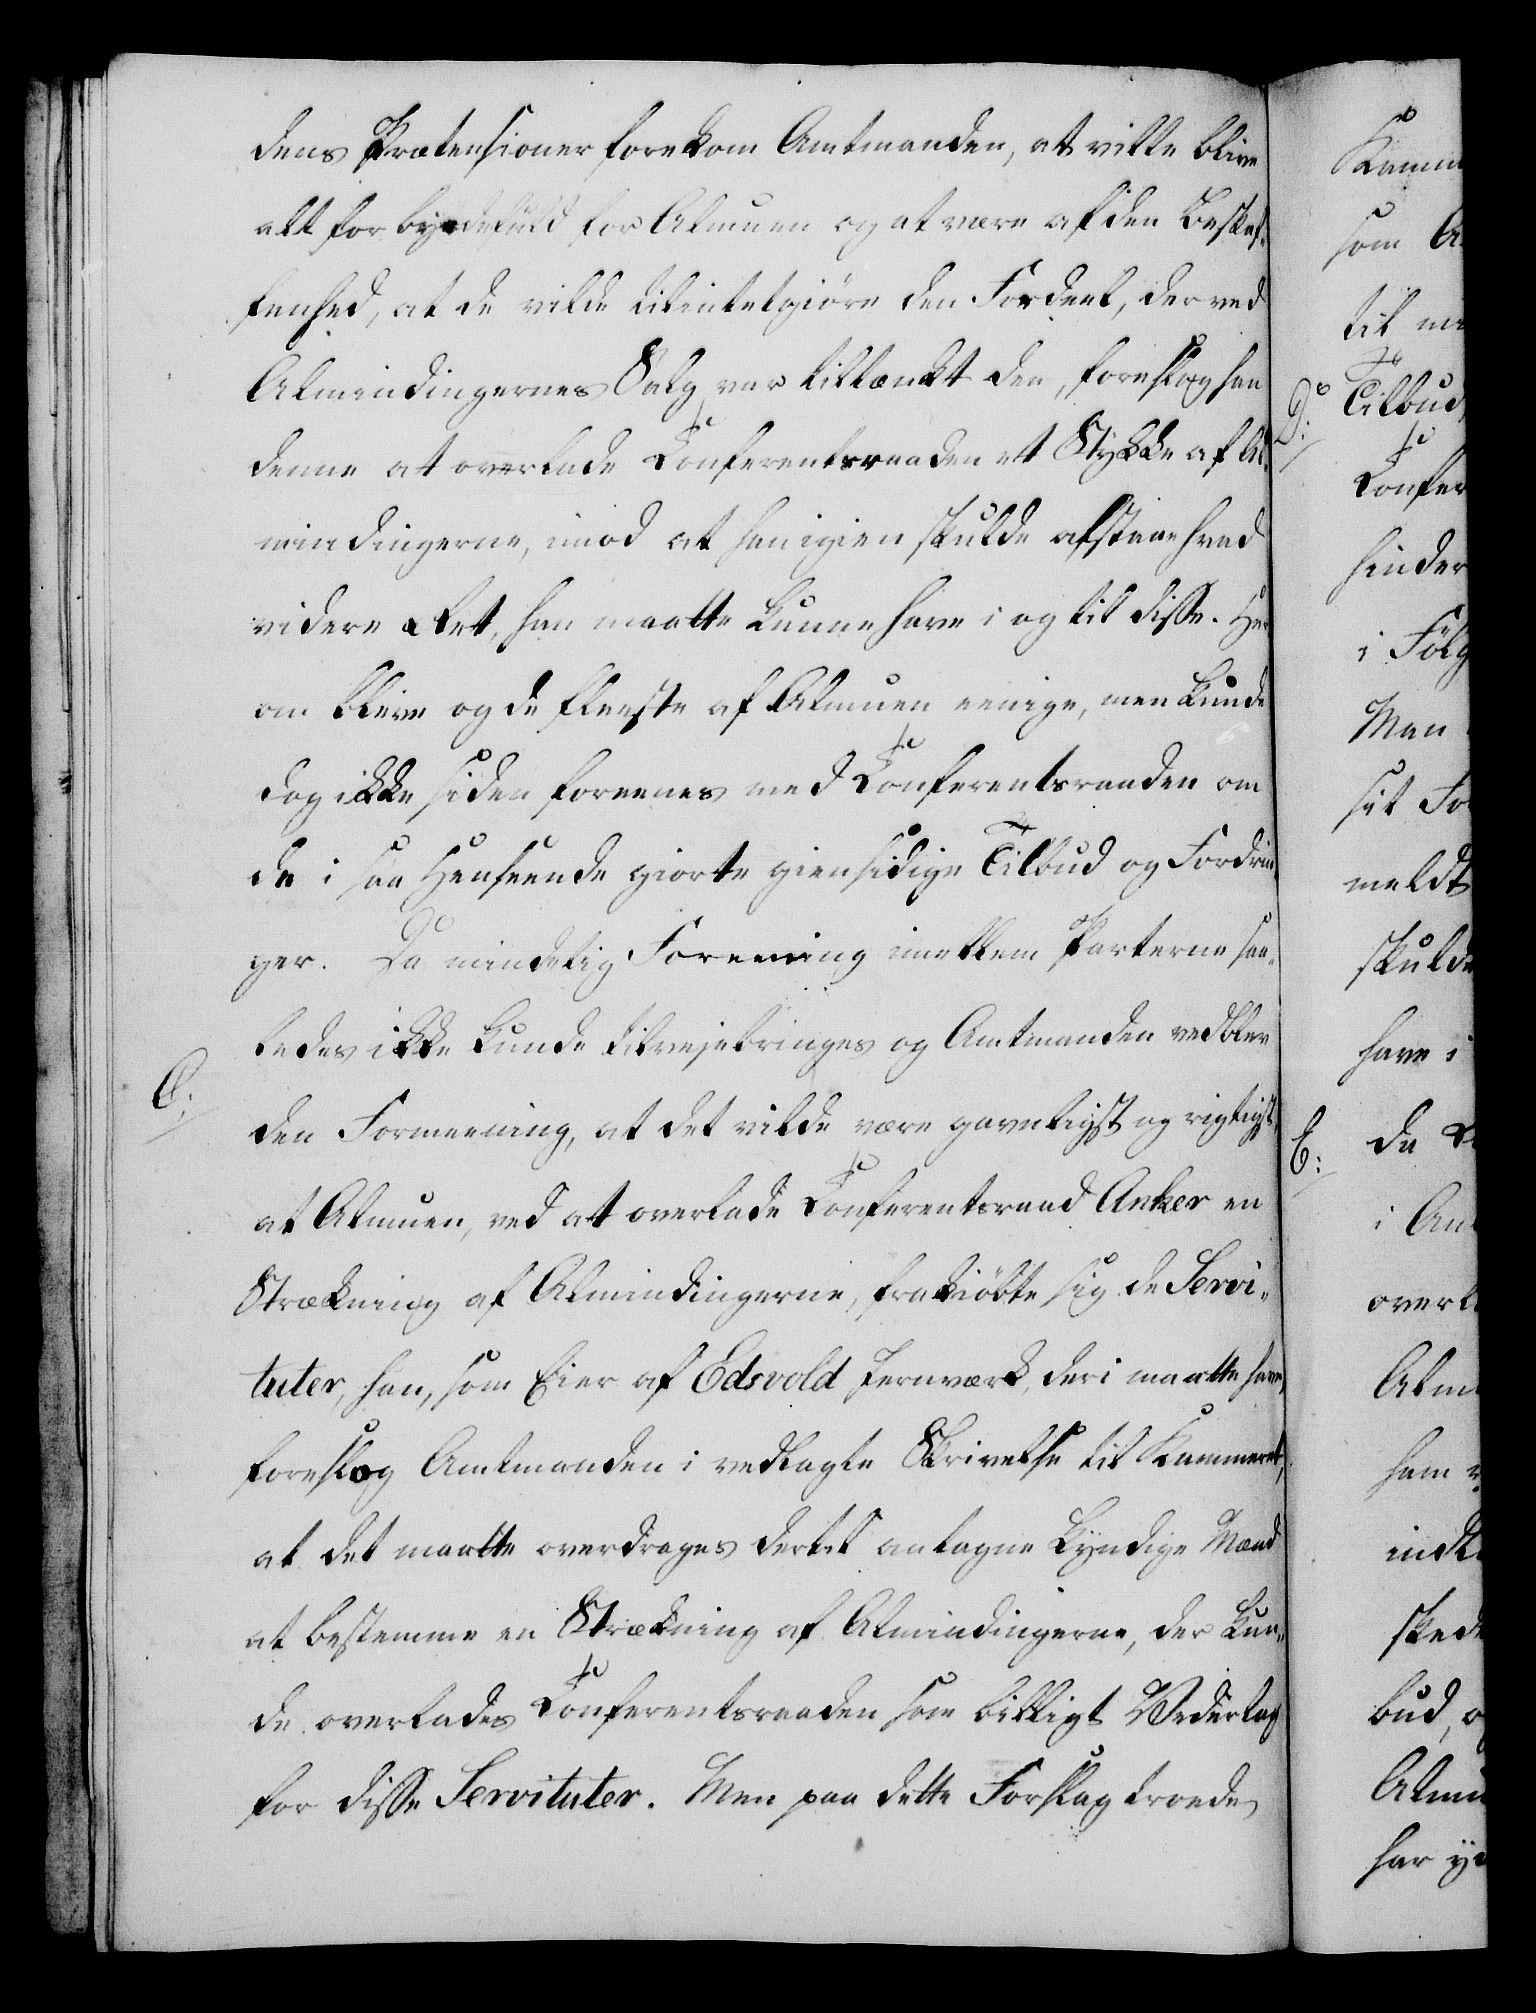 dens Prætensioner forekom Amtmanden, at ville blive
alt for byrdefuld for Almuen og at være af den Beskaf-
fenhed, at de vilde tilintetgiøre den Fordeel, der ved
Almindingernes Salg var tiltænkt den, foreslog han
denne at overlade Conferentsraaden et Stykke af Al-
mindingerne, imod at han igien skulde afstaae hvad
videre Ret, han maatte kunne have i og til disse. Her-
om bleve og de fleeste af Almuen eenige, men kunde
dog ikke siden foreenes med Conferentsraaden om
de i saa Henseende giorte giensidige Tilbud og Fordrin-
ger. Da mindelig Foreening imellem Parterne saa-
ledes ikke kunde tilvejebringes og Amtmanden vedblev
C:
den Formeening, at det vilde være gavnligst og rigtigst,
at Almuen, ved at overlade Conferentsraad Anker en
Strækning af Almindingerne, frakiøbte sig de Servi-
tuter, han, som Eier af Edsvold Jernværk, deri maatte have,
foreslog Amtmanden i vedlagte Skrivelse til Kammeret,
at det maatte overdrages dertil antagne kyndige Mænd
at bestemme en Strækning af Almindingerne, der kun-
de overlades Conferentsraaden som billigt Vederlag
for disse Servituter. Men paa dette Forslag troede
Kamm
som A
til
D:
Tilbud
Confer
hinder
i Følg
Man
sit Fo
meldt
skulde
have i
E:
da
i An
overl
Alm
ham
indt
skede
bud, o
Almu
har